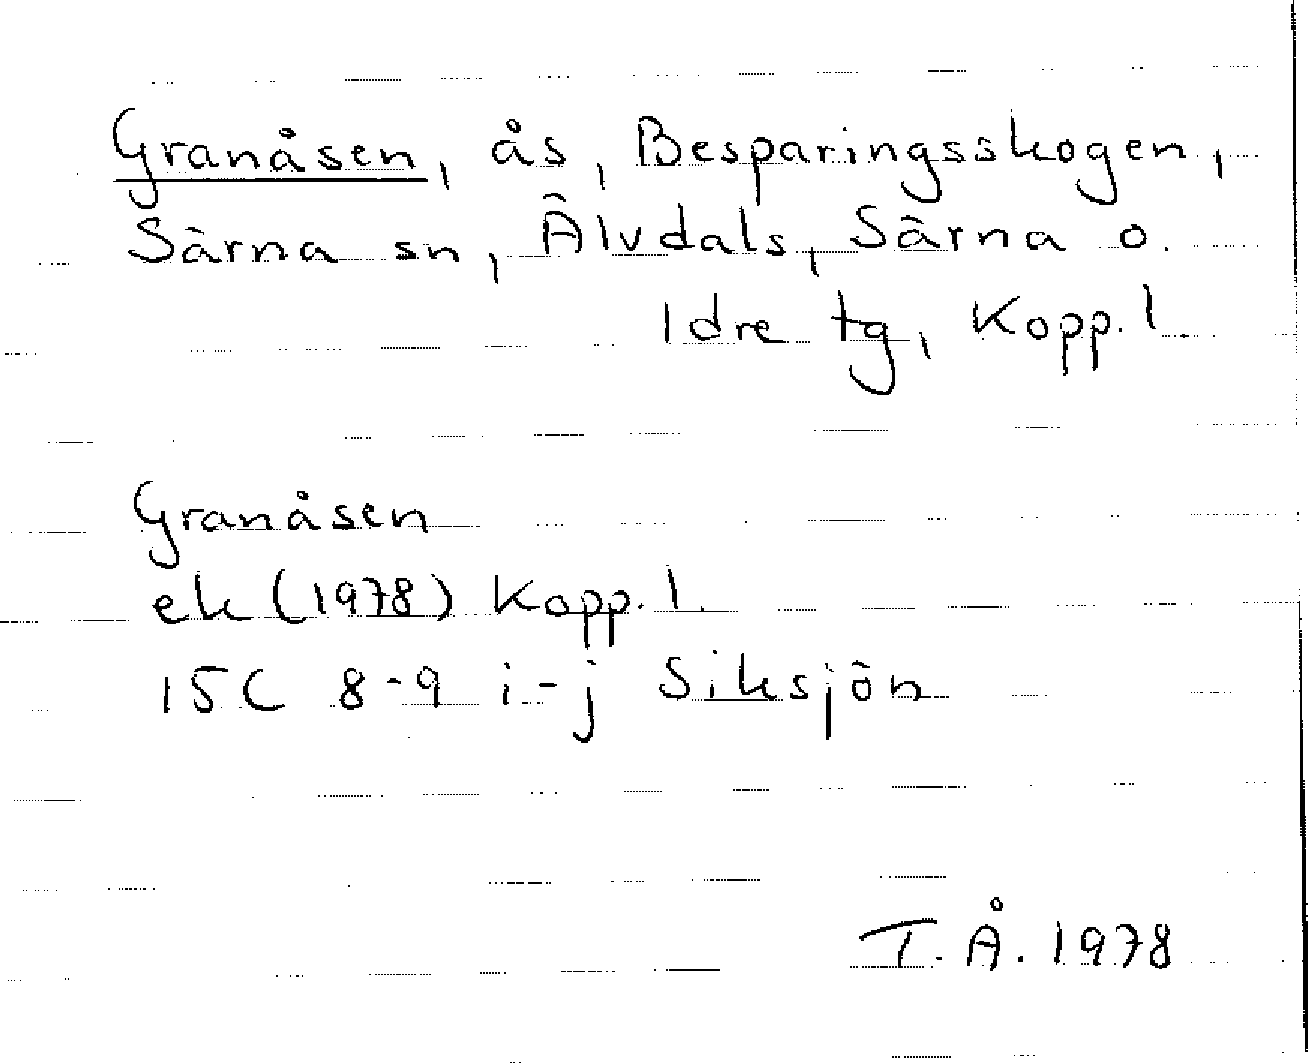 Granåsen, ås, Besparingsskogen,
Särna sn, Älvdals, Särna o.
Idre tg, Kopp. l
Granåsen
ek (1978) Kopp. l.
15C 8-9 i-j Siksjön
T.Å. 1978